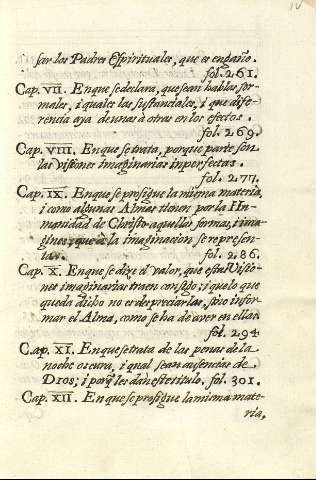 sor los Padres Espirituales, que es engaño.
fol. 261.
Cap. VII. En que se declara, que sean hablas for-
males, i quales las sustanciales, i que dife-
rencia aya de unas à otras en los efectos.
fol. 269.
Cap. VIII. En que se trata, porque parte son
las visiones imaginarias inperfectas.
fol. 277.
Cap. IX. En que se prosigue la misma materia,
i como algunas Almas tienen por la Hu-
manidad de Christo aquellas formas, i ima-
gines, que à la imaginacion se represen-
tan. fol. 286.
Cap. X. En que se dize el valor, que estas Visio-
nes imaginarias traen consigo; i que lo que
queda dicho no es despreciarlas, sino infor-
mar el Alma, como se ha de aver en ellas.
fol. 294.
Cap. XI. En que se trata de las penas de la
noche oscura, i qual sean ausencias de
Dios; i porque les dan este titulo. fol. 301.
Cap. XII. En que se prosigue la misma mate-
ria,